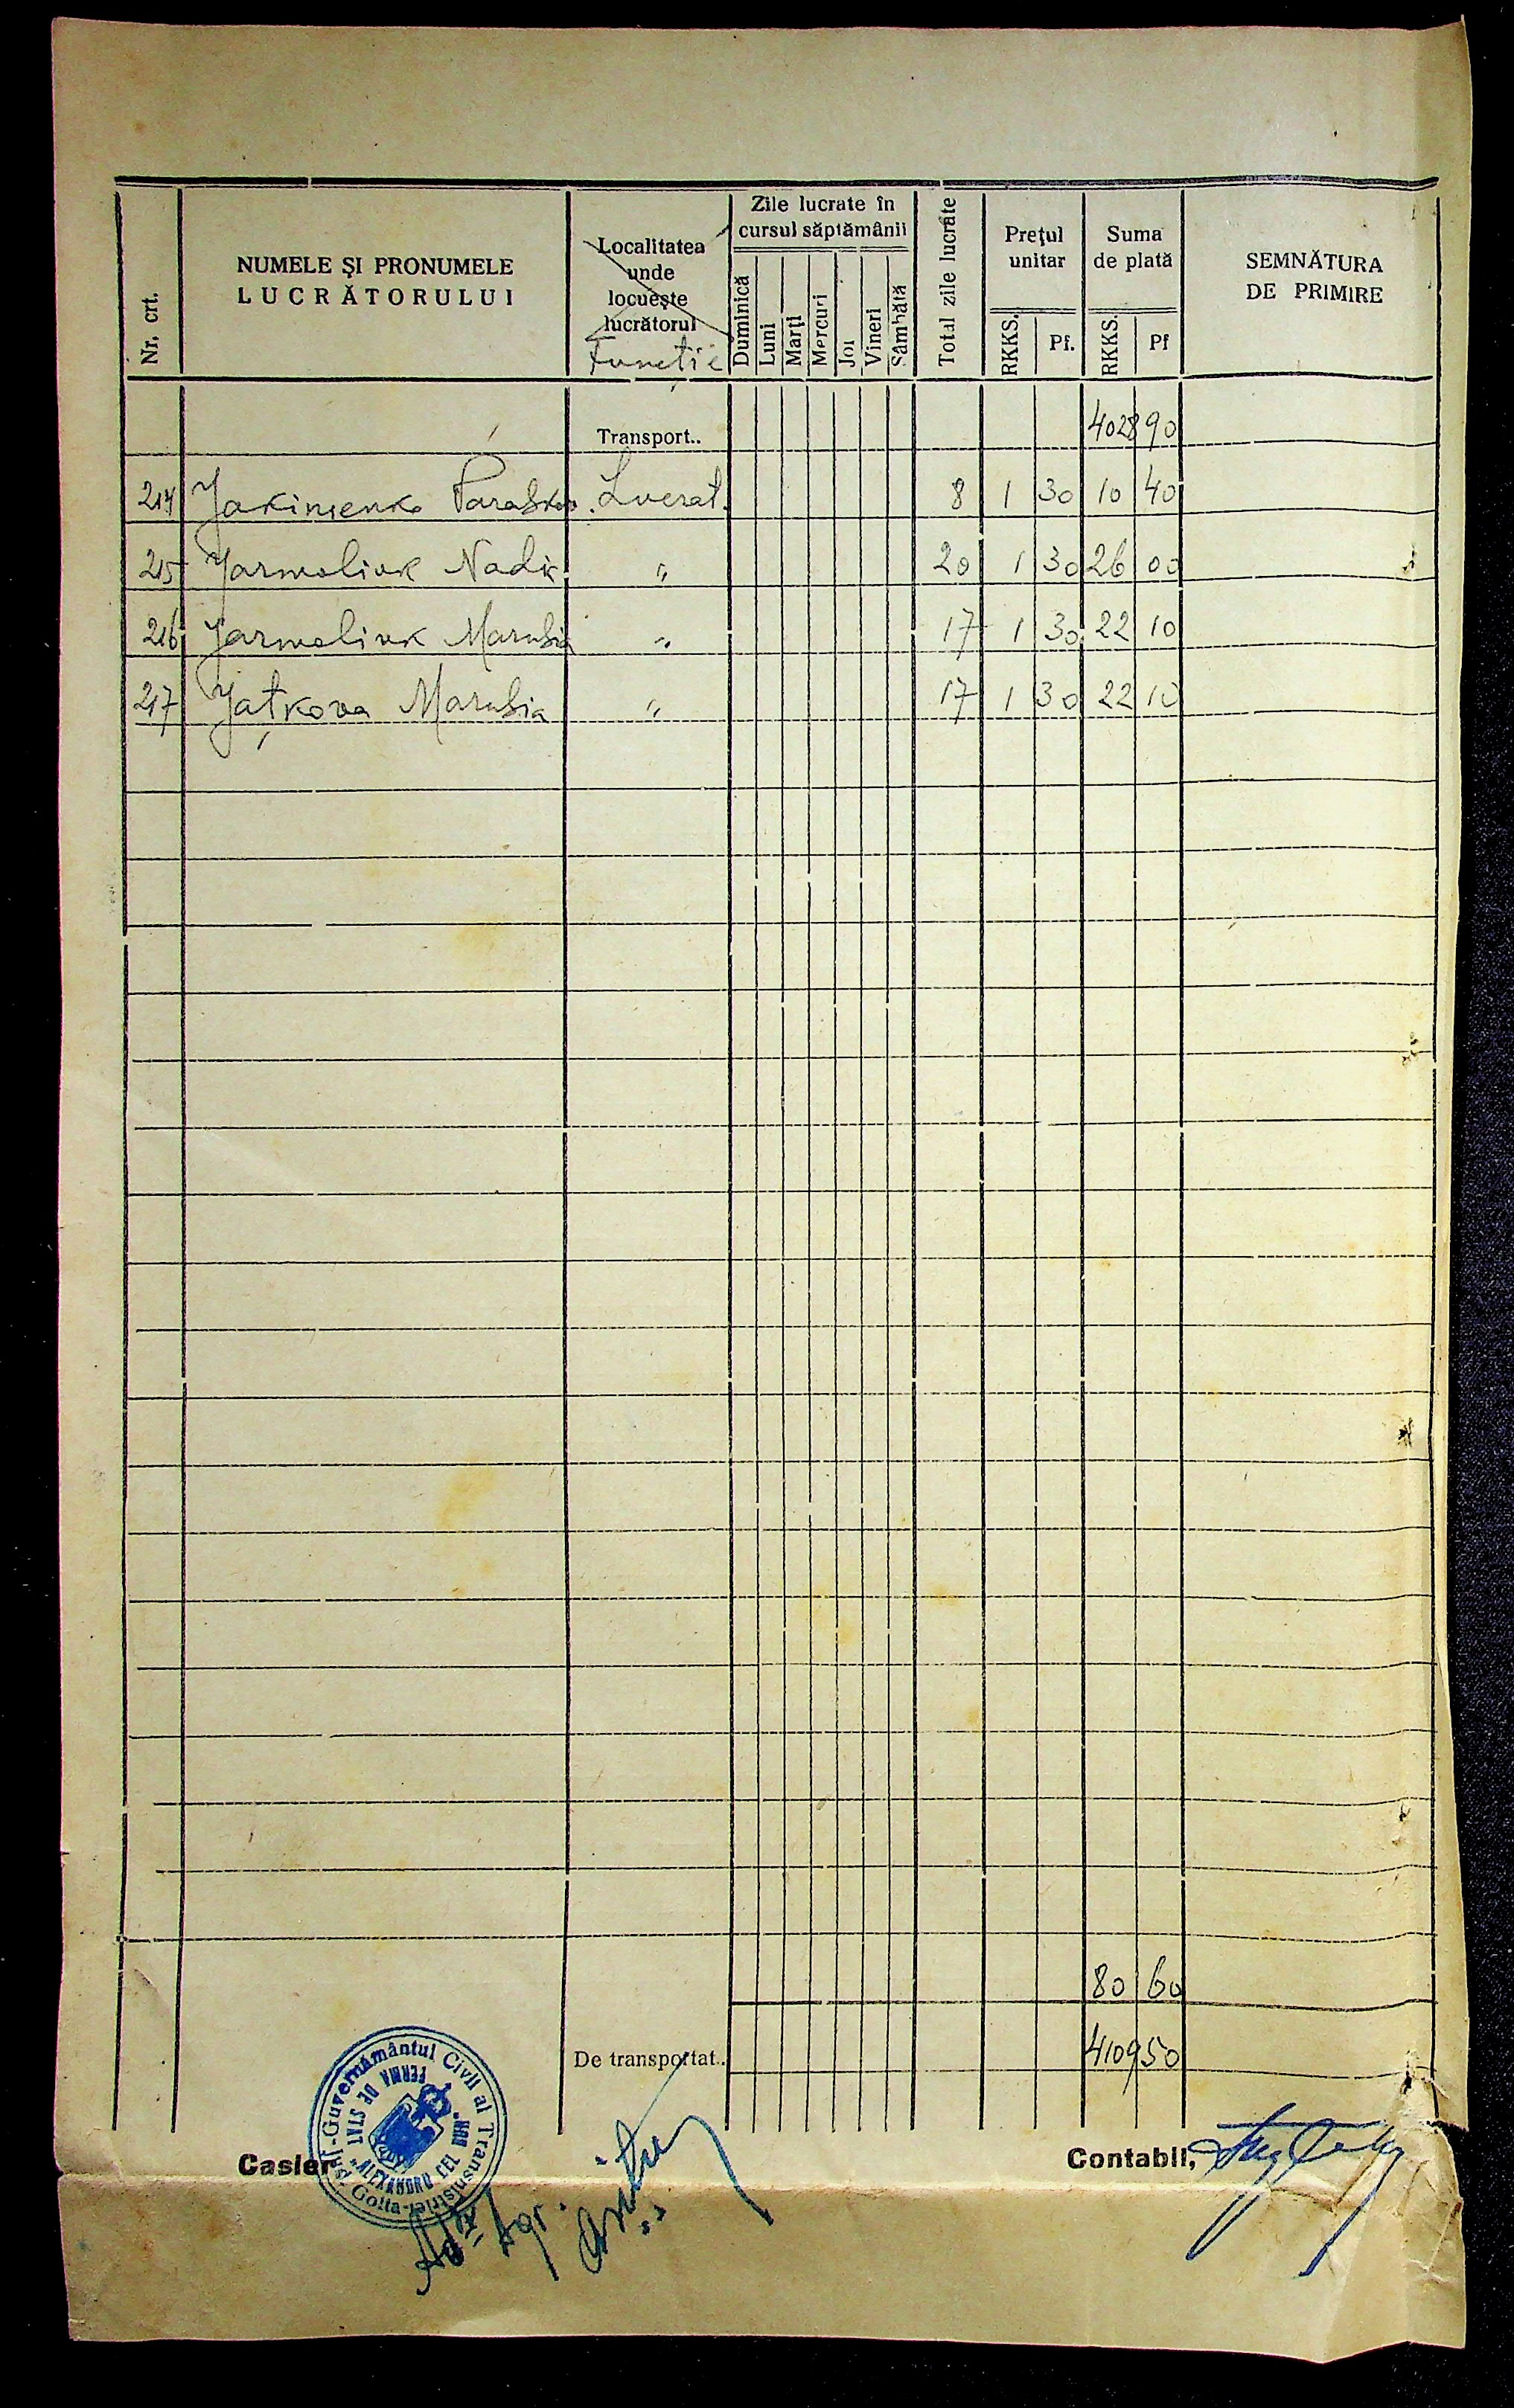 Nr. crt.
NUMELE ȘI PRONUMELE
LUCRĂTORULUI
Localitatea
unde
locuește
lucrătorul
Functie
Zile lucrate în
cursul săptămânii
Duminică
Luni
Marți
Mercuri
Joi
Vineri
Sâmbătă
Total zile lucrate
Prețul
unitar
RKKS.
Pf.
Suma
de plată
RKKS.
Pf
SEMNĂTURA
DE PRIMIRE
Transport.. 4028 90
214 Jakimenko Paraskov. Lucrat. 8 1 30 10 40
215 Jarmoliuk Nadia " 20 1 30 26 00
216 Jarmoliuk Marusia " 17 1 30 22 10
217 Jațkova Marusia " 17 1 30 22 10
80 60
De transportat.. 4109 50
Casier
Guvernământul Civil al Transnistriei - Jud. Golta
FERMA DE STAT
"ALEXANDRU CEL BUN"
Contabil,
Agr.